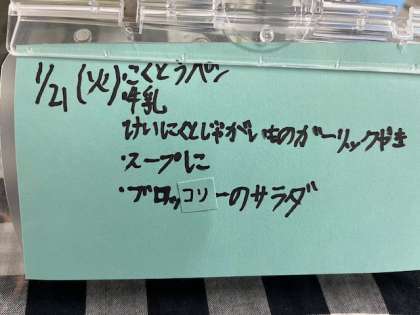 1/21(火)・こくとうパン
牛乳
けいにくとじゃがいものガーリックやき
・スープに
・ブロッコリーのサラダ